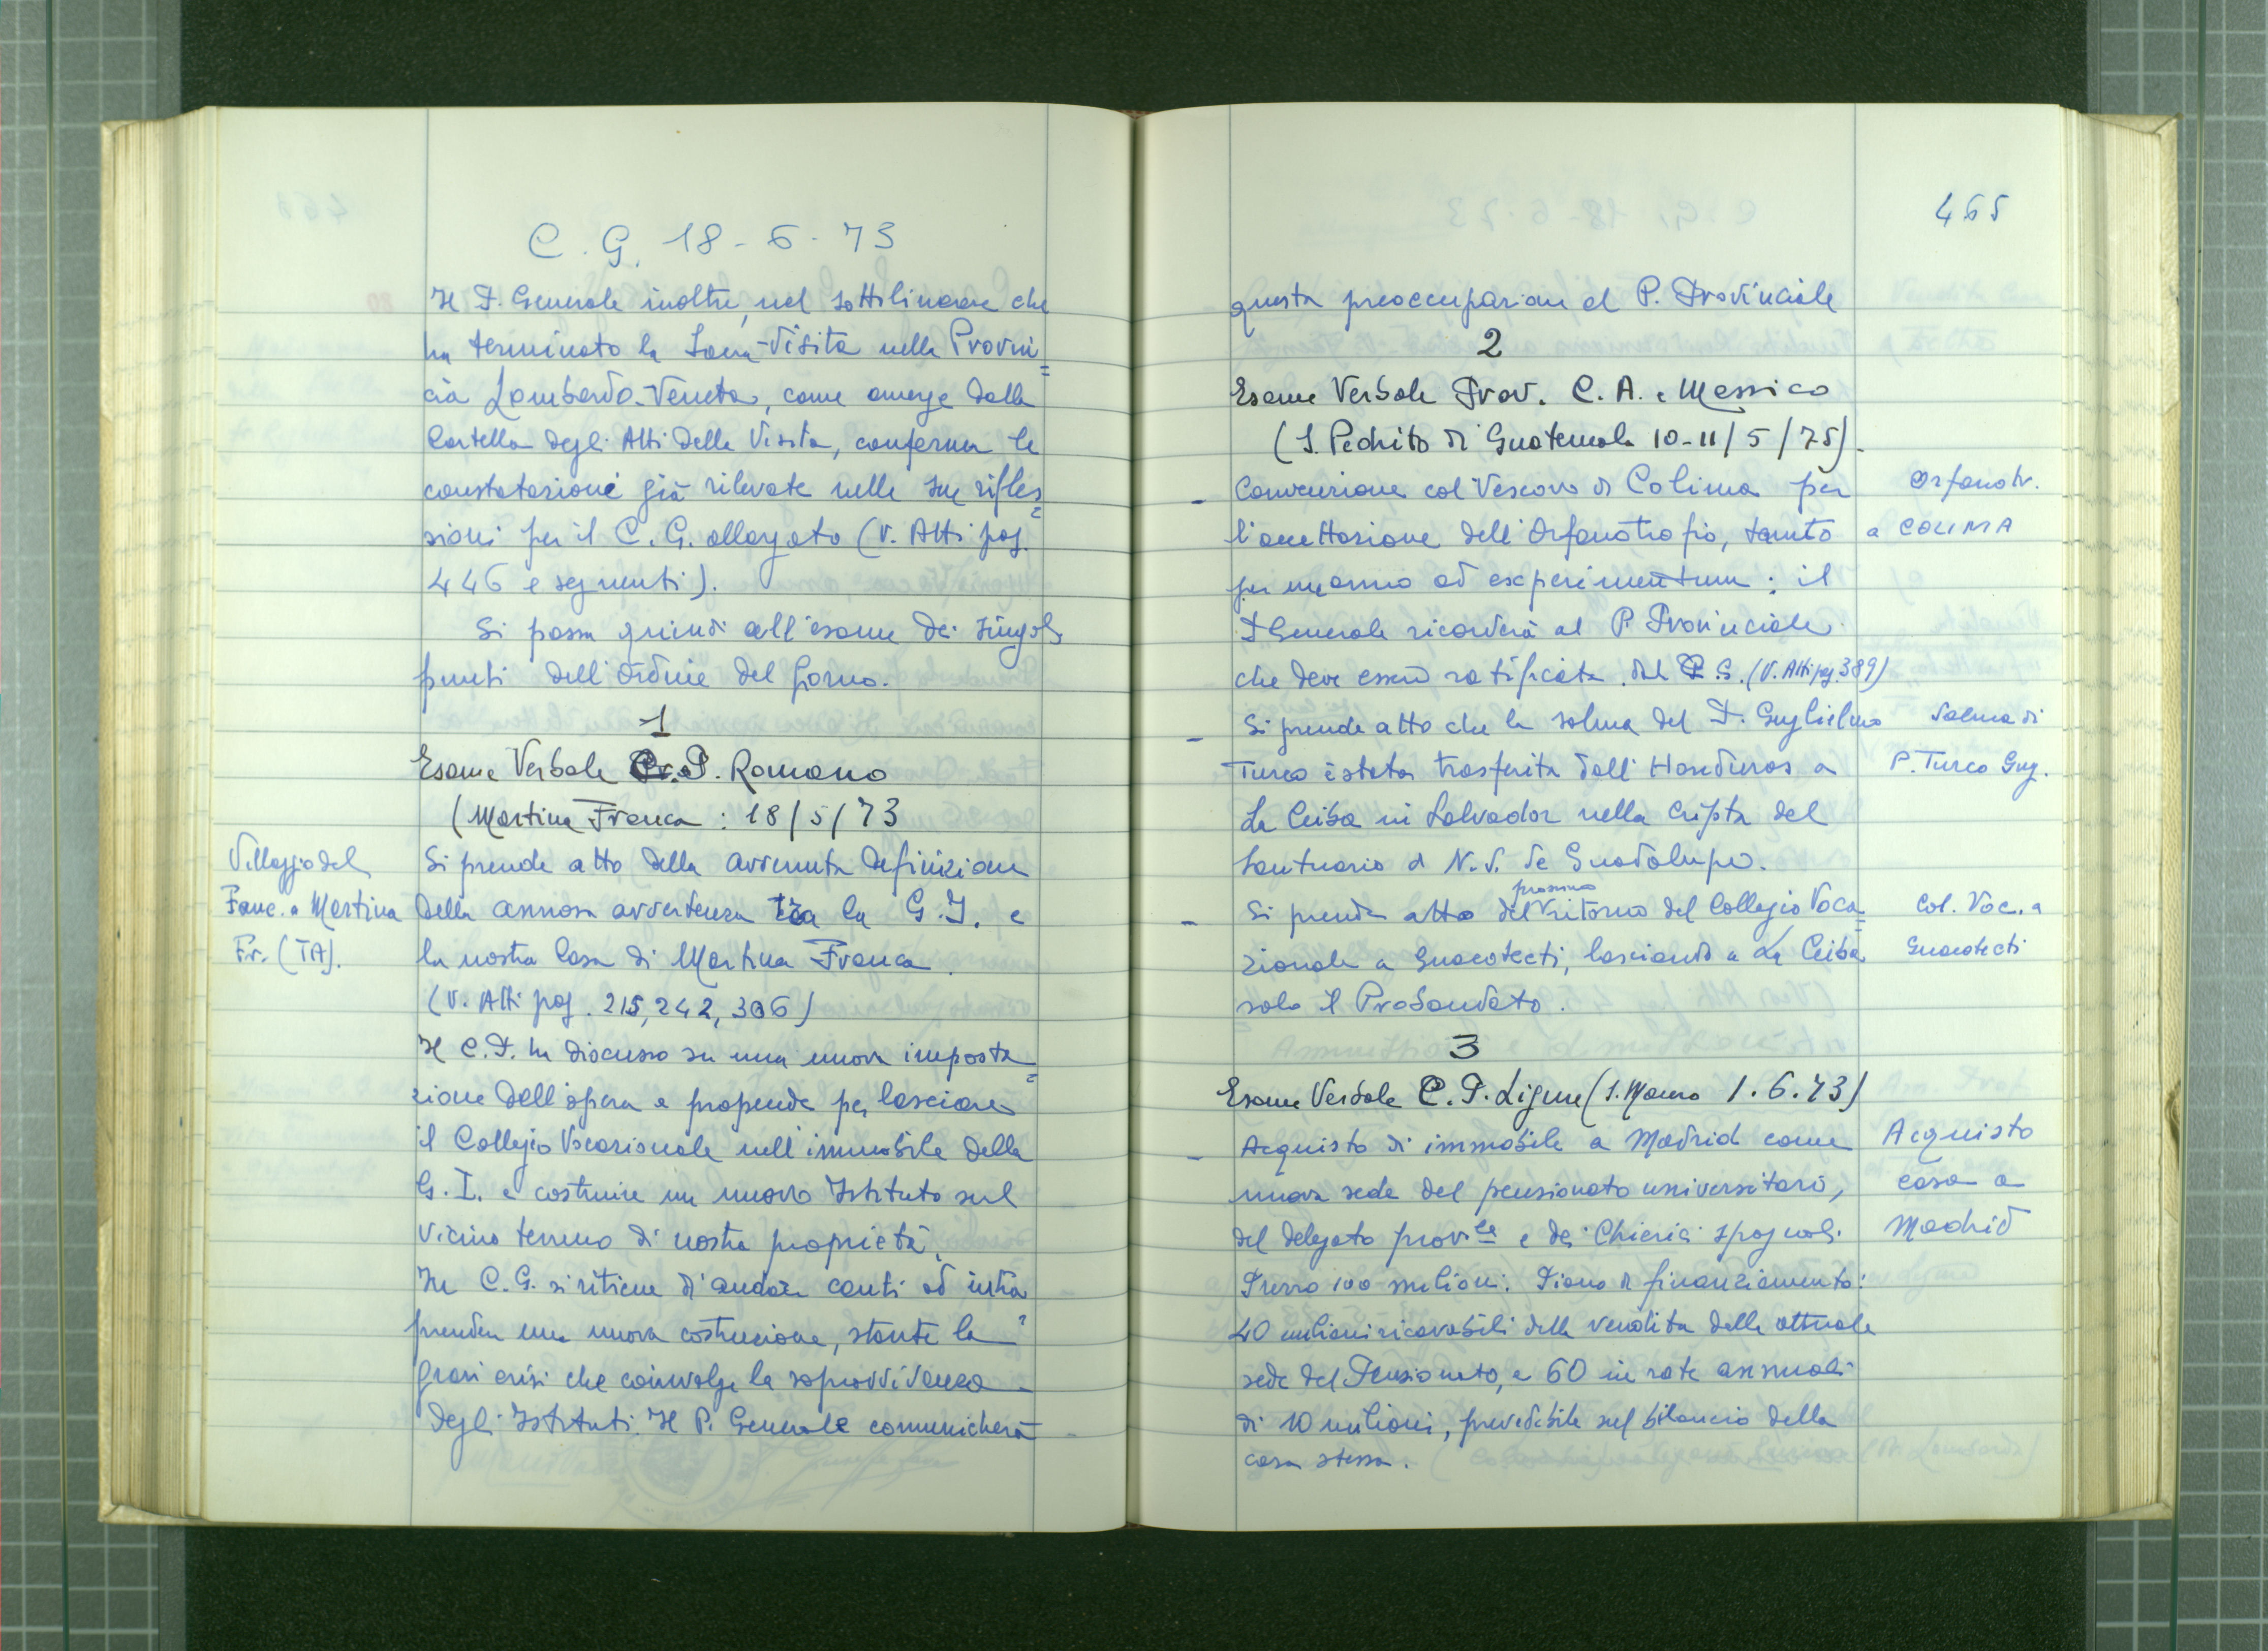 C. G. 18-6-73
Il P. Generale inoltre, nel sottolineare che
ha terminato la Sacra-Visita nella Provin=
cia Lombardo-Veneta, come emerge dalla
Cartella degli Atti della Visita, conferma le
constatazioni già rilevate nelle sue rifles=
sioni per il C. G. allargato (V. Atti pag.
446 e seguenti).
Si passa quindi all'esame dei singoli
punti dell'ordine del giorno.
1
Esame Verbale C. P. Romano
(Martina Franca: 18/5/73
Villaggio del
Fanc. a Martina
Fr. (TA).
Si prende atto della avvenuta definizione
della annosa avvertenza tra la G. I. e
la nostra Casa di Martina Franca.
(V. Atti pag. 215, 242, 306)
Il C. P. ha discusso su una nuova imposta=
zione dell'opera e propende per lasciare
il Collegio Vocazionale nell'immobile della
G. I. e costruire un nuovo Istituto sul
vicino terreno di nostra proprietà.
In C. G. si ritiene di andare cauti ad intra=
prendere una nuova costruzione, stante la
grave crisi che coinvolge la sopravvivenza
degli Istituti. Il P. Generale comunicherà
465
questa preoccupazione al P. Provinciale
2
Esame Verbale Prov. C. A. e Messico
(S. Pedrito di Guatemala 10-11/5/75).
- Convenzione col Vescovo di Colima per
l'accettazione dell'Orfanotrofio, tanto
per un anno ad experimentum: il
P Generale ricorderà al P. Provinciale
che deve essere ratificata dal C. G. (V. Atti pg. 389)
Orfanotr.
a COLIMA
- Si prende atto che la salma del P. Guglielmo
Turco è stata trasferita dall'Honduras a
La Ceiba in Salvador nella Cripta del
Santuario di N. S. de Guadalupe.
Salma di
P. Turco Gug.
- Si prende atto del prossimo ritorno del Collegio Voca=
zionale a Guacotecti, lasciando a La Ceiba
solo il Probandato.
Col. Voc. a
Guacotecti
3
Esame Verbale C. P. Ligure (S. Mauro 1.6.73)
- Acquisto di immobile a Madrid come
nuova sede del pensionato universitario,
del delegato prov.le e dei Chierici spagnoli.
Prezzo 100 milioni. Piano di finanziamento:
40 milioni ricavabili dalla vendita della attuale
sede del Pensionato, e 60 in rate annuali
di 10 milioni, prevedibile sul bilancio della
casa stessa.
Acquisto
casa a
Madrid